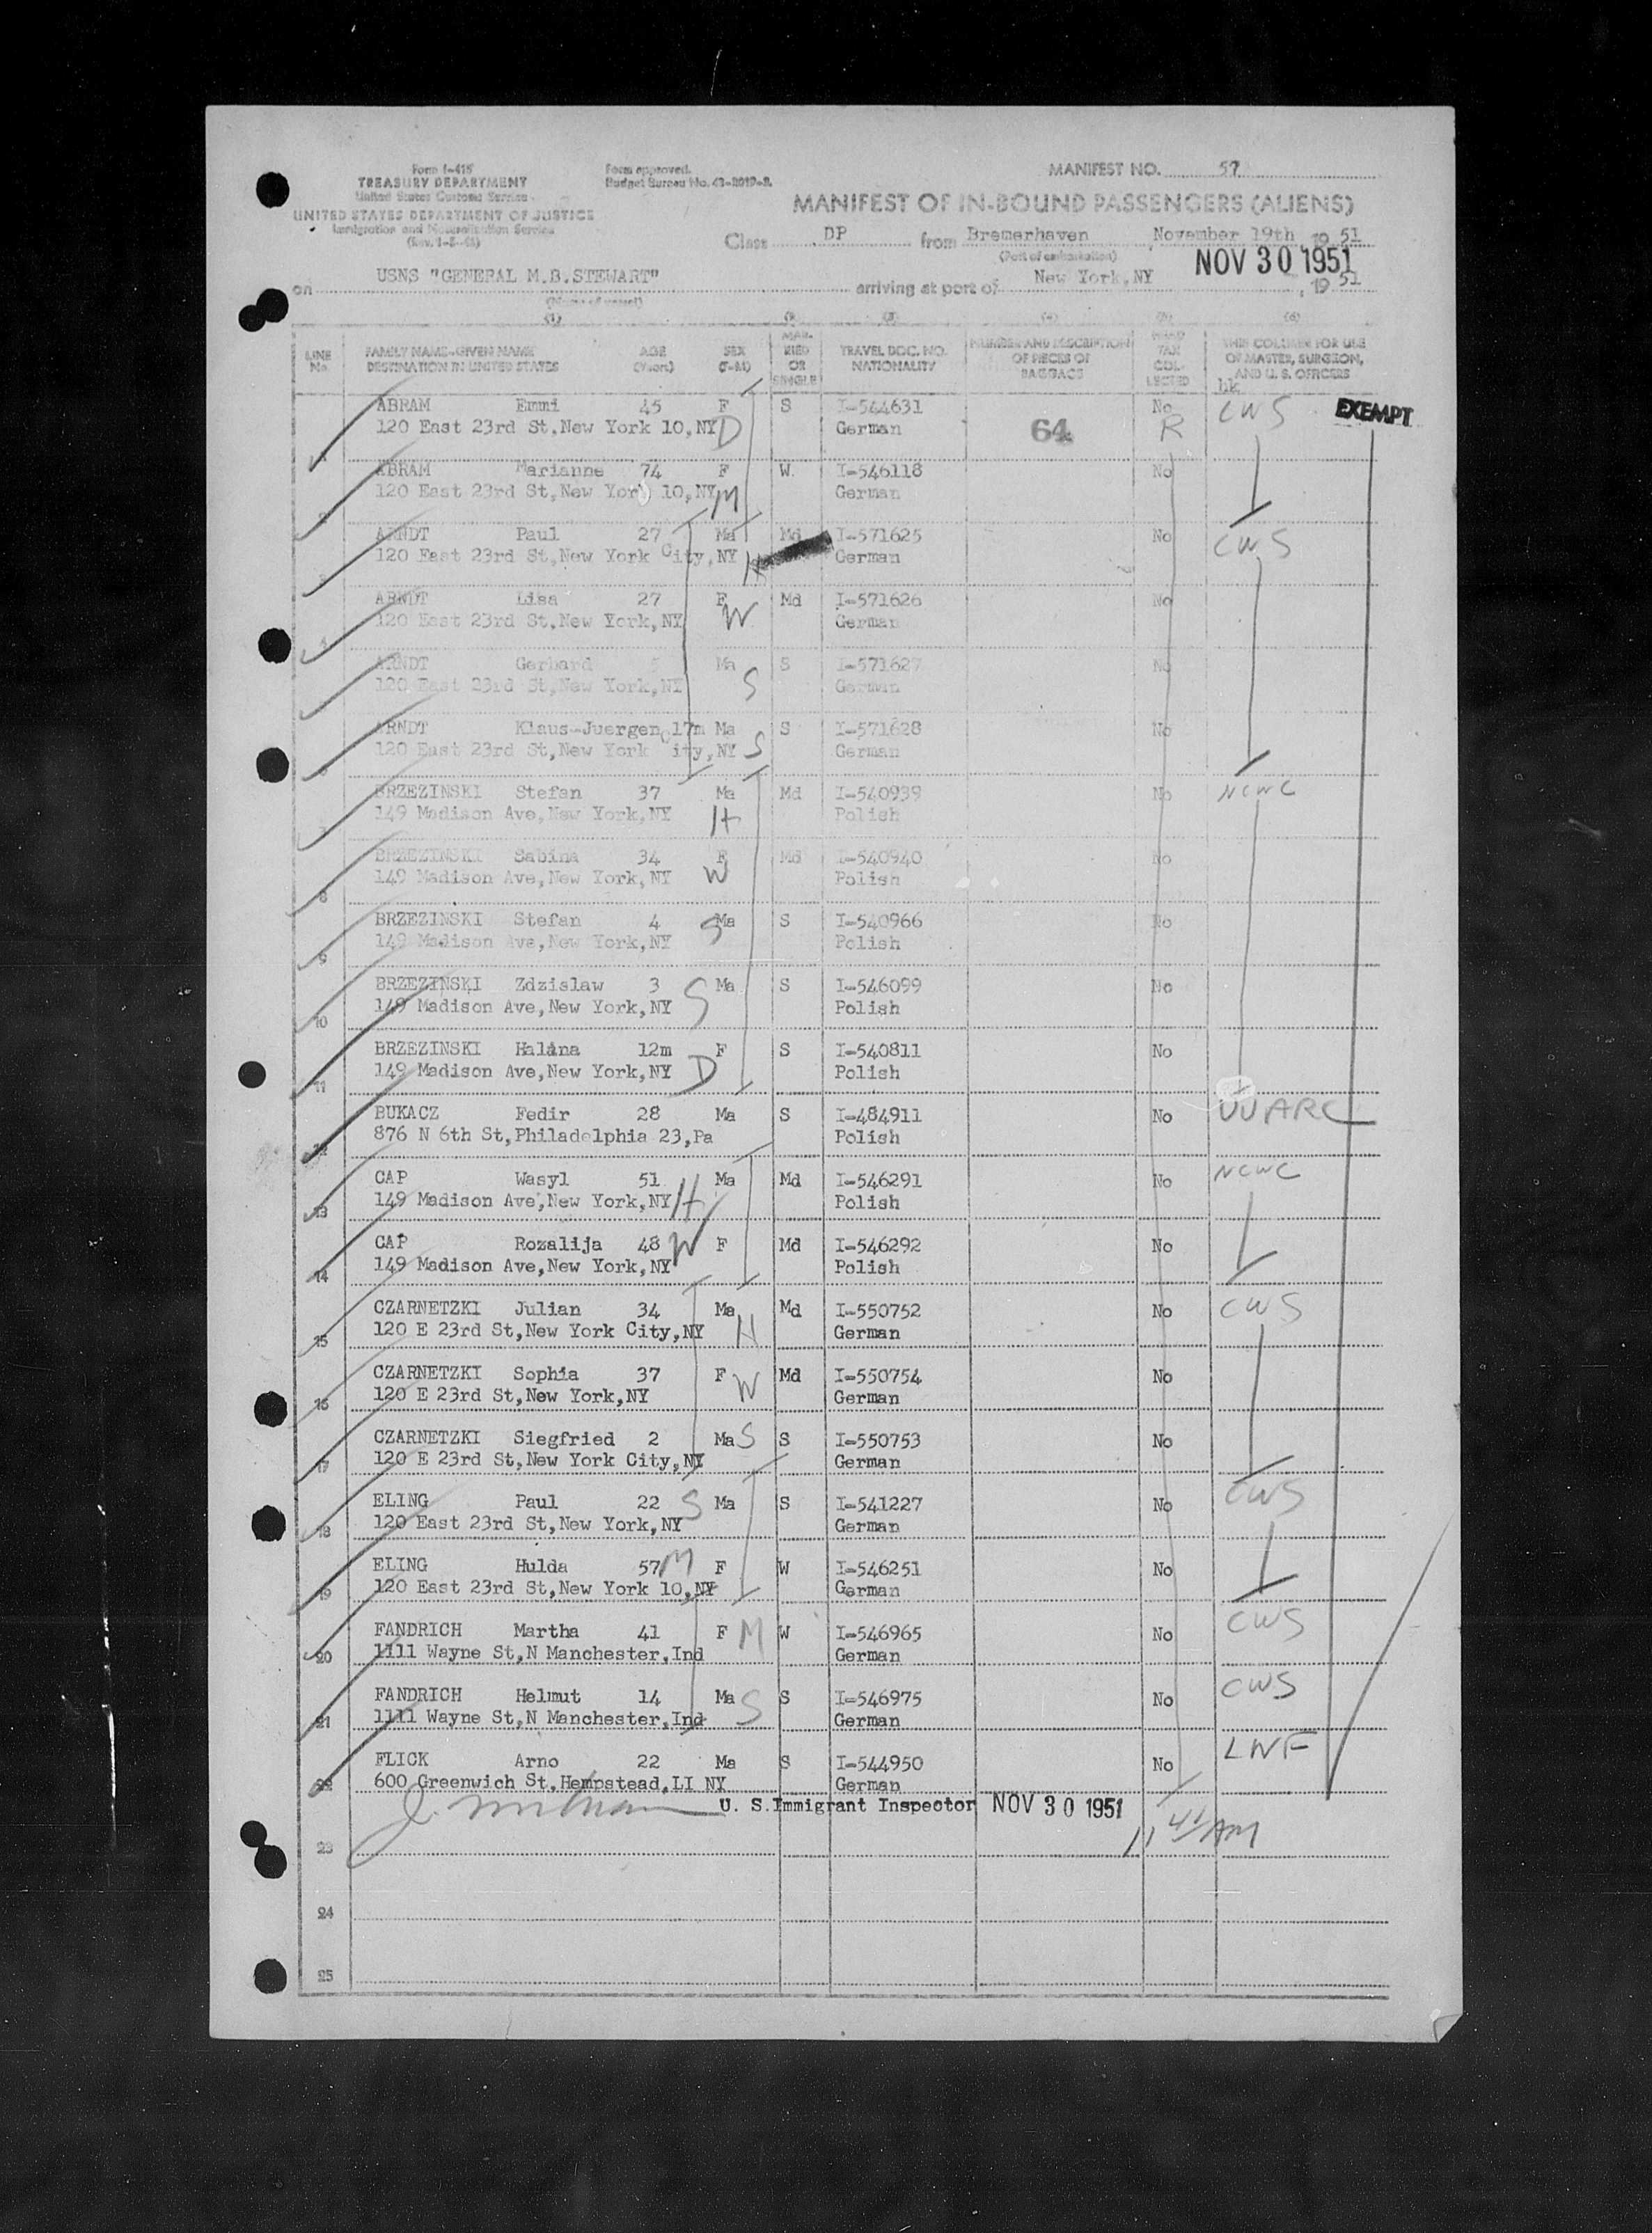 Form I-415
TREASURY DEPARTMENT
United States Customs Service
UNITED STATES DEPARTMENT OF JUSTICE
Immigration and Naturalization Service
Form approved.
Budget Bureau No. 43-R019-2.
MANIFEST NO. 57
MANIFEST OF IN-BOUND PASSENGERS (ALIENS)
Class DP from Bremerhaven November 19th, 19 51
(Port of embarkation)
NOV 30 1951
on USNS "GENERAL M.B.STEWART" arriving at port of New York,NY , 19 51
(Name of vessel)
(1) (2) (3) (4) (5) (6)
LINE No. FAMILY NAME-GIVEN NAME DESTINATION IN UNITED STATES AGE (Years) SEX (F-M) MARRIED OR SINGLE TRAVEL DOC. NO. NATIONALITY NUMBER AND DESCRIPTION OF PIECES OF BAGGAGE HEAD TAX COLLECTED THIS COLUMN FOR USE OF MASTER, SURGEON, AND U. S. OFFICERS
ABRAM Emmi 45 F S I-544631 No CWS EXEMPT
120 East 23rd St.New York 10,NY D German 64 R
ABRAM Marianne 74 F W. I-546118 No
2 120 East 23rd St,New York 10,NY M German
ARNDT Paul 27 Ma Md I-571625 No CWS
3 120 East 23rd St,New York City,NY H German
ARNDT Lisa 27 F Md I-571626 No
4 120 East 23rd St.New York,NY W German
ARNDT Gerhard Ma S I-571627 No
120 East 23rd St,New York,NY S German
ARNDT Klaus-Juergen 17m Ma S I-571628 No
6 120 East 23rd St,New York City,NY S German
BRZEZINSKI Stefan 37 Ma Md I-540939 No NCWC
149 Madison Ave,New York,NY H Polish
BRZEZINSKI Sabina 34 F Md I-540940 No
8 149 Madison Ave,New York,NY W Polish
BRZEZINSKI Stefan 4 S Ma S I-540966 No
9 149 Madison Ave,New York,NY Polish
BRZEZINSKI Zdzislaw 3 Ma S I-546099 No
10 149 Madison Ave,New York,NY S Polish
BRZEZINSKI Halina 12m F S I-540811 No
11 149 Madison Ave,New York,NY D Polish
BUKACZ Fedir 28 Ma S I-484911 No UUARC
12 876 N 6th St,Philadelphia 23,Pa Polish
CAP Wasyl 51 Ma Md I-546291 No NCWC
13 149 Madison Ave,New York,NY H Polish
CAP Rozalija 48 W F Md I-546292 No
14 149 Madison Ave,New York,NY Polish
CZARNETZKI Julian 34 Ma Md I-550752 No CWS
15 120 E 23rd St,New York City,NY H German
CZARNETZKI Sophia 37 F W Md I-550754 No
16 120 E 23rd St,New York,NY German
CZARNETZKI Siegfried 2 Ma S S I-550753 No
17 120 E 23rd St,New York City,NY German
ELING Paul 22 S Ma S I-541227 No CWS
18 120 East 23rd St,New York,NY German
ELING Hulda 57 M F W I-546251 No
19 120 East 23rd St,New York 10,NY German
FANDRICH Martha 41 F M W I-546965 No CWS
20 1111 Wayne St,N Manchester,Ind German
FANDRICH Helmut 14 Ma S S I-546975 No CWS
21 1111 Wayne St,N Manchester,Ind German
FLICK Arno 22 Ma S I-544950 No LWF
22 600 Greenwich St,Hempstead,LI NY German
U. S.Immigrant Inspector NOV 30 1951
23 AM
24
25